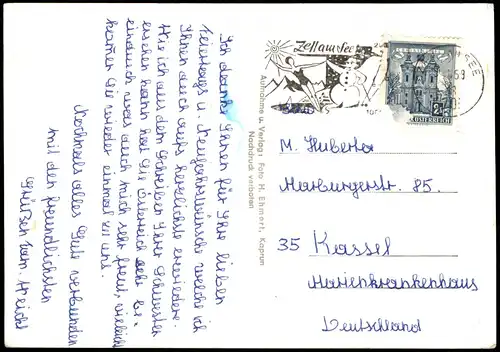 Ich danke Ihnen für Ihre lieben
Feiertags u. Neujahrswünsche welche ich
Ihnen auch aufs herzlichste erwidere.
Wie ich aus dem Schreiben Ihrer Schwester
ersehen kann hat Sie Österreich sehr be-
eindruckt was auch mich sehr freut, vielleicht
kommen Sie wieder einmal zu uns.
Nochmals alles Gute verbunden
mit den freundlichsten
Grüßen Fam.
Aufnahme u. Verlag: Foto H. Ehmert, Kaprun
Nachdruck verboten
Zell am See
REPUBLIK
ÖSTERREICH
M. Huberta
Marburgerstr. 85.
35 Kassel
Marienkrankenhaus
Deutschland